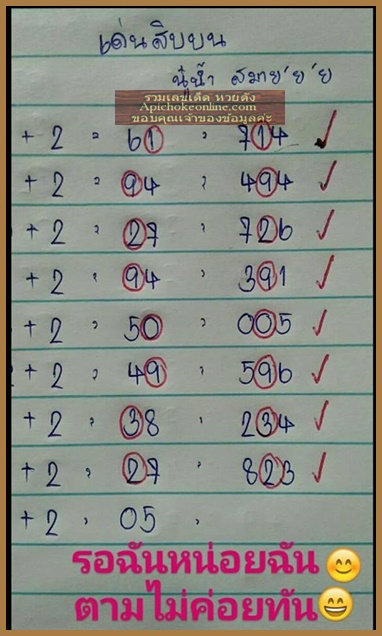 เด่นสิบบน
นู๋น้ำ สมาย'ย'ย
รวมเลขเด็ด หวยดัง
Apichokeonline.com
ขอบคุณเจ้าของข้อมูลค่ะ
+ 2 = 61 , 714 ✓
+ 2 = 94 , 494 ✓
+ 2 , 27 , 726 ✓
+ 2 , 94 , 391 ✓
+ 2 , 50 , 005 ✓
+ 2 , 49 , 596 ✓
+ 2 , 38 , 234 ✓
+ 2 , 27 , 823 ✓
+ 2 , 05 ,
รอฉันหน่อยฉัน😊
ตามไม่ค่อยทัน😄